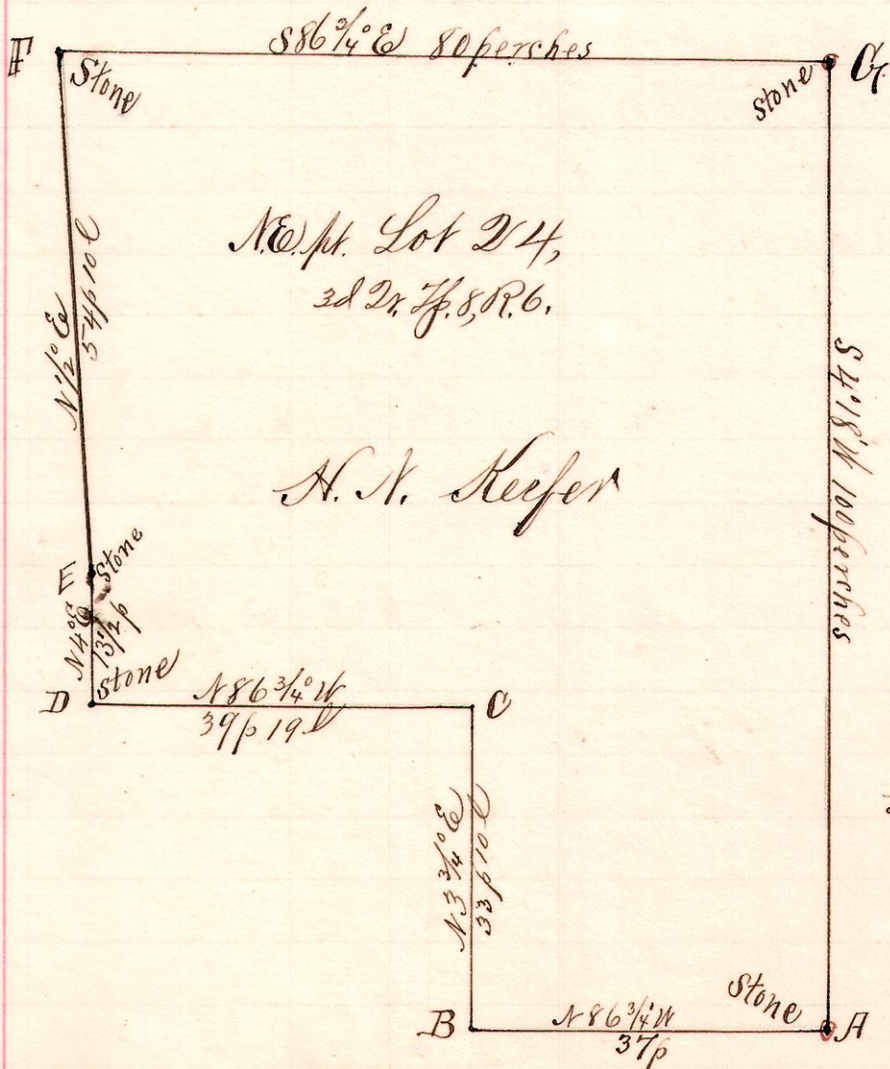 F
S 86 3/4° E 80 perches
G
Stone
Stone
N.E. pt. Lot 24,
3d Qr. Tp. 8, R. 6.
N 1/2° E
54 p 10 l
S 4° 18' W 100 perches
H. N. Keefer
E
Stone
N 4° E
13 1/2 p
D
Stone
N 86 3/4° W
39 p 19 l
C
N 3 3/4° E
33 p 10 l
Stone
B
N 86 3/4° W
37 p
A